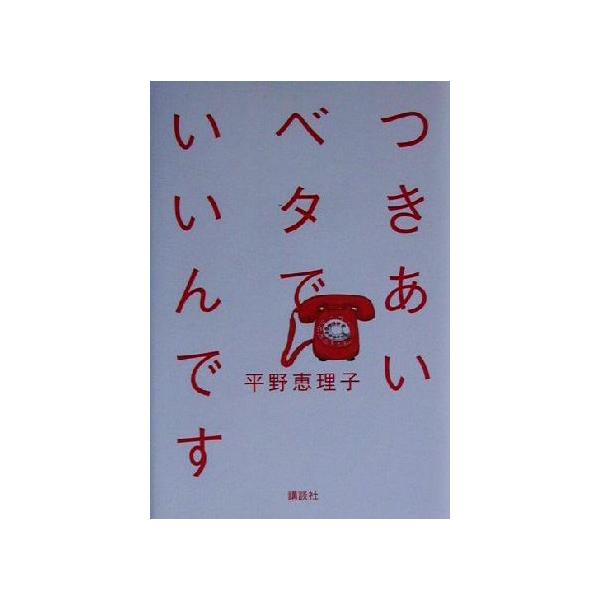 つきあい
ベタで
いいんです
平野恵理子
講談社